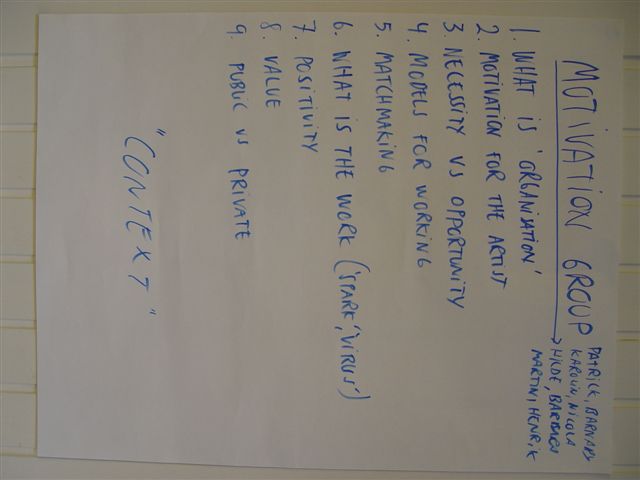 MOTIVATION GROUP
PATRICK, BARNABY
KAROLIN, NICOLA
→ HILDE, BARBARA
MARTIN, HENRIK
1. WHAT IS 'ORGANISATION'
2. MOTIVATION FOR THE ARTIST
3. NECESSITY VS OPPORTUNITY
4. MODELS FOR WORKING
5. MATCHMAKING
6. WHAT IS THE WORK ('SPARK', 'VIRUS')
7. POSITIVITY
8. VALUE
9. PUBLIC VS PRIVATE
"CONTEXT"